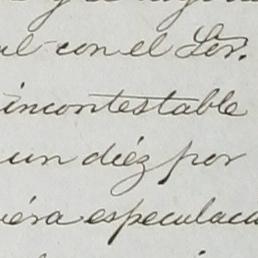 al con el Sor.
incontestable
un diéz por
iéra especulac